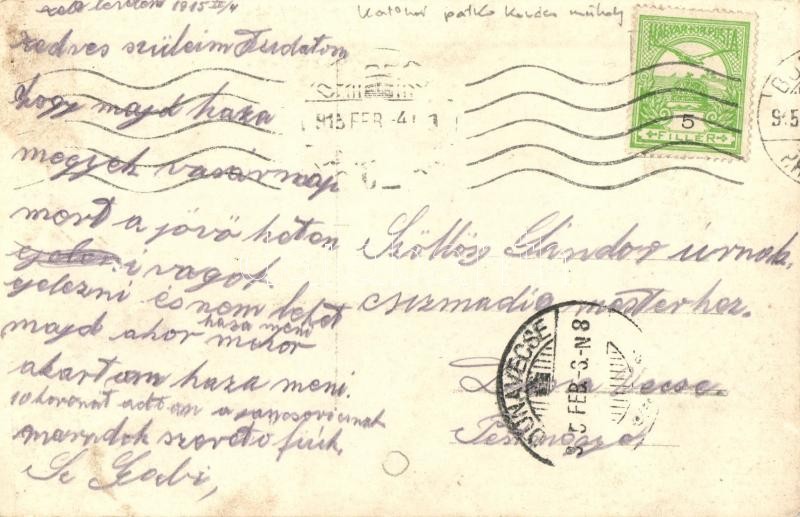 kelt levelem 1915 II/4
Katonai patkó kovács műhely
kedves szüleim Tudatom
hogy majd haza
megyek vasárnap
mert a jövő héten
i vagok
jelezni és nem lehet
haza meni
majd ahor mikor
akartam haza meni.
10 koronát adtam a
maradok szerető fiúk,
Sz Gabi,
MAGYAR KIR. POSTA
5
FILLÉR
915 FEB -4
Szöllősy Sándor úrnak,
csizmadia mesterhez.
Dunavecse.
Pestmegye
DUNAVECSE
915 FEB -6 -N 8